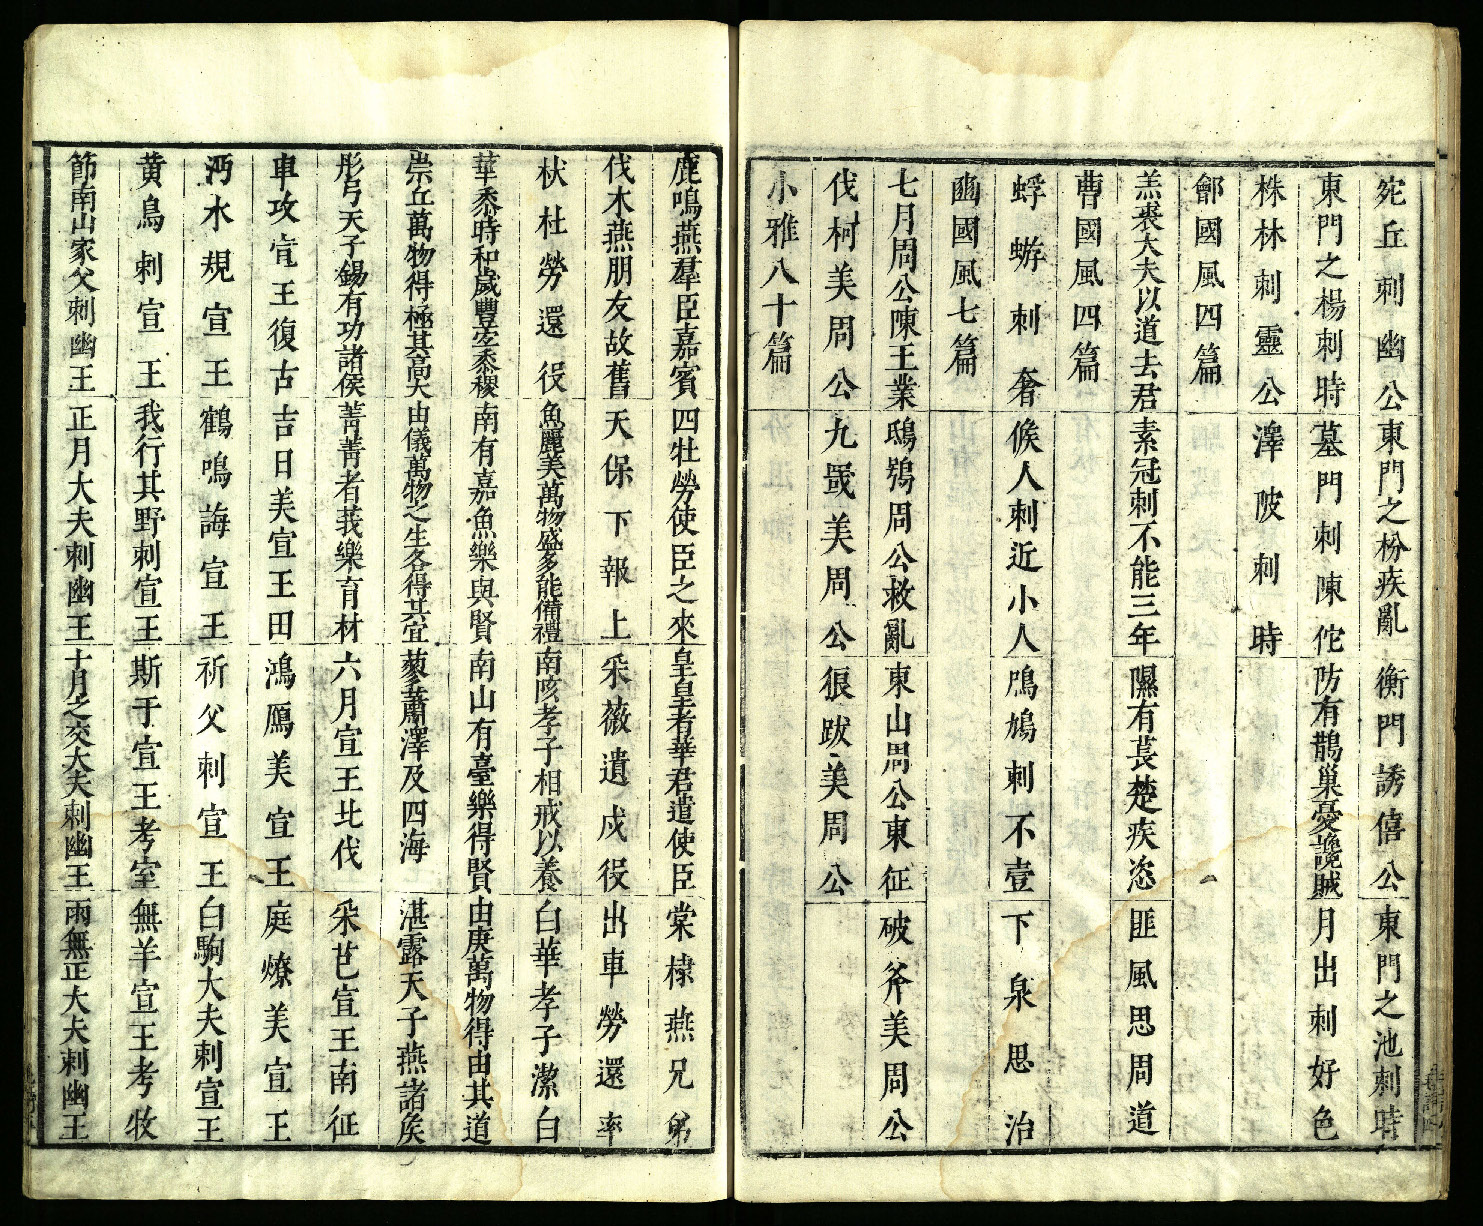 宛丘刺幽公東門之枌疾亂衡門誘僖公東門之池刺時
東門之楊刺時墓門刺陳佗防有鵲巢憂讒賊月出刺好色
株林刺靈公澤陂刺時
鄶國風四篇
羔裘大夫以道去君素冠刺不能三年隰有萇楚疾恣匪風思周道
曹國風四篇
蜉蝣刺奢候人刺近小人鳲鳩刺不壹下泉思治
豳國風七篇
七月周公陳王業鴟鴞周公救亂東山周公東征破斧美周公
伐柯美周公九罭美周公狼跋美周公
小雅八十篇
鹿鳴燕羣臣嘉賓四牡勞使臣之來皇皇者華君遣使臣棠棣燕兄弟
伐木燕朋友故舊天保下報上采薇遣戍役出車勞還率
杕杜勞還役魚麗美萬物盛多能備禮南陔孝子相戒以養白華孝子潔白
華黍時和歲豐宜黍稷南有嘉魚樂與賢南山有臺樂得賢由庚萬物得由其道
崇丘萬物得極其高大由儀萬物之生各得其宜蓼蕭澤及四海湛露天子燕諸侯
彤弓天子錫有功諸侯菁菁者莪樂育材六月宣王北伐采芑宣王南征
車攻宣王復古吉日美宣王田鴻鴈美宣王庭燎美宣王
沔水規宣王鶴鳴誨宣王祈父刺宣王白駒大夫刺宣王
黄鳥刺宣王我行其野刺宣王斯于宣王考室無羊宣王考牧
節南山家父刺幽王正月大夫刺幽王十月之交大夫刺幽王雨無正大夫刺幽王